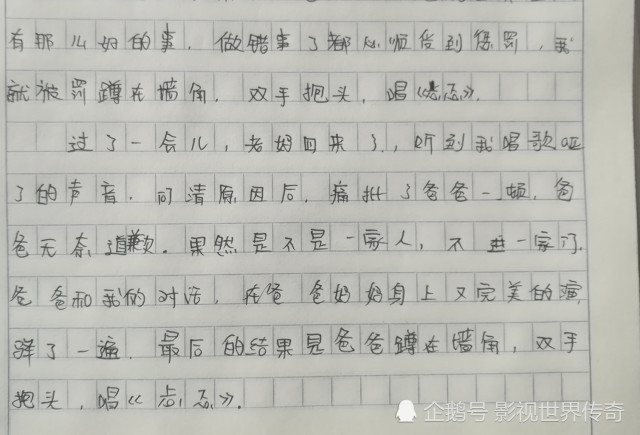 有那儿好的事，做错事了都必须受到惩罚，我
就被罚蹲在墙角，双手抱头，唱《忐忑》。
过了一会儿，老妈回来了，听到我唱歌哑
了的声音，问清原因后，痛批了爸爸一顿，爸
爸无奈道歉。果然是不是一家人，不进一家门。
爸爸和我的对话，在爸爸妈妈身上又完美的演
绎了一遍，最后的结果是爸爸蹲在墙角，双手
抱头，唱《忐忑》。
企鹅号 影视世界传奇